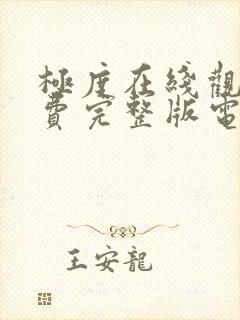 極度在綫觀
費完整版電
王安龍